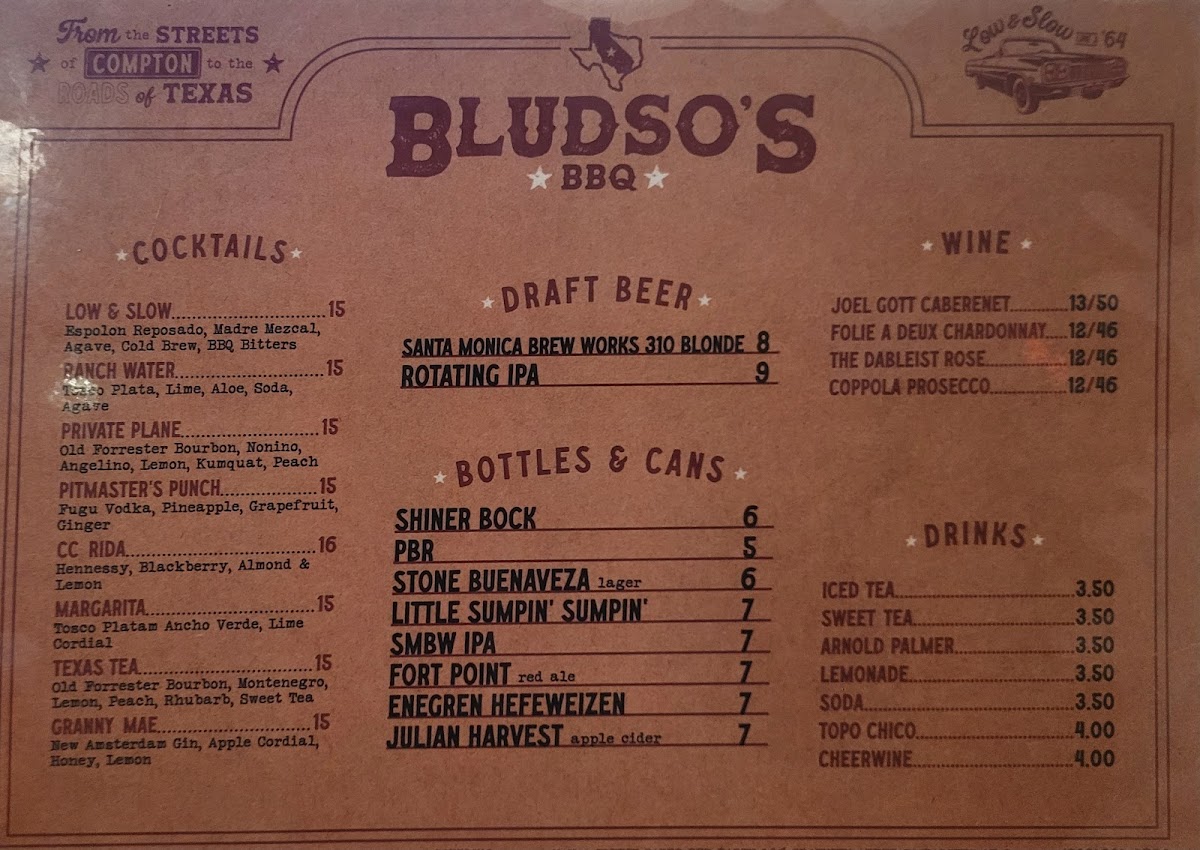 From the STREETS
of COMPTON to the
ROADS of TEXAS
Low & Slow
'64
BLUDSO'S
BBQ
COCKTAILS
LOW & SLOW 15
Espolon Reposado, Madre Mezcal,
Agave, Cold Brew, BBQ Bitters
RANCH WATER 15
Tosco Plata, Lime, Aloe, Soda,
Agave
PRIVATE PLANE 15
Old Forrester Bourbon, Nonino,
Angelino, Lemon, Kumquat, Peach
PITMASTER'S PUNCH 15
Fugu Vodka, Pineapple, Grapefruit,
Ginger
CC RIDA 16
Hennessy, Blackberry, Almond &
Lemon
MARGARITA 15
Tosco Platam Ancho Verde, Lime
Cordial
TEXAS TEA 15
Old Forrester Bourbon, Montenegro,
Lemon, Peach, Rhubarb, Sweet Tea
GRANNY MAE 15
New Amsterdam Gin, Apple Cordial,
Honey, Lemon
DRAFT BEER
SANTA MONICA BREW WORKS 310 BLONDE 8
ROTATING IPA 9
BOTTLES & CANS
SHINER BOCK 6
PBR 5
STONE BUENAVEZA lager 6
LITTLE SUMPIN' SUMPIN' 7
SMBW IPA 7
FORT POINT red ale 7
ENEGREN HEFEWEIZEN 7
JULIAN HARVEST apple cider 7
WINE
JOEL GOTT CABERENET 13/50
FOLIE A DEUX CHARDONNAY 12/46
THE DABLEIST ROSE 12/46
COPPOLA PROSECCO 12/46
DRINKS
ICED TEA 3.50
SWEET TEA 3.50
ARNOLD PALMER 3.50
LEMONADE 3.50
SODA 3.50
TOPO CHICO 4.00
CHEERWINE 4.00